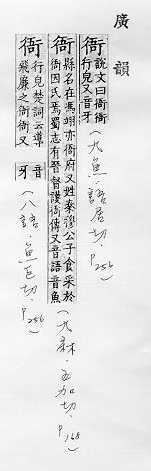 廣韻
衙 說文曰衙衙
行皃又音牙
(九魚．語居切．P256)
衙 縣名在馮翊亦衙府又姓秦穆公子食采於
衙因氏焉蜀志有晉督護衙傳又音語音魚
(九麻．五加切．P168)
衙 行皃楚詞云導
飛廉之衙衙又
音
牙
(八語．魚巨切．P256)